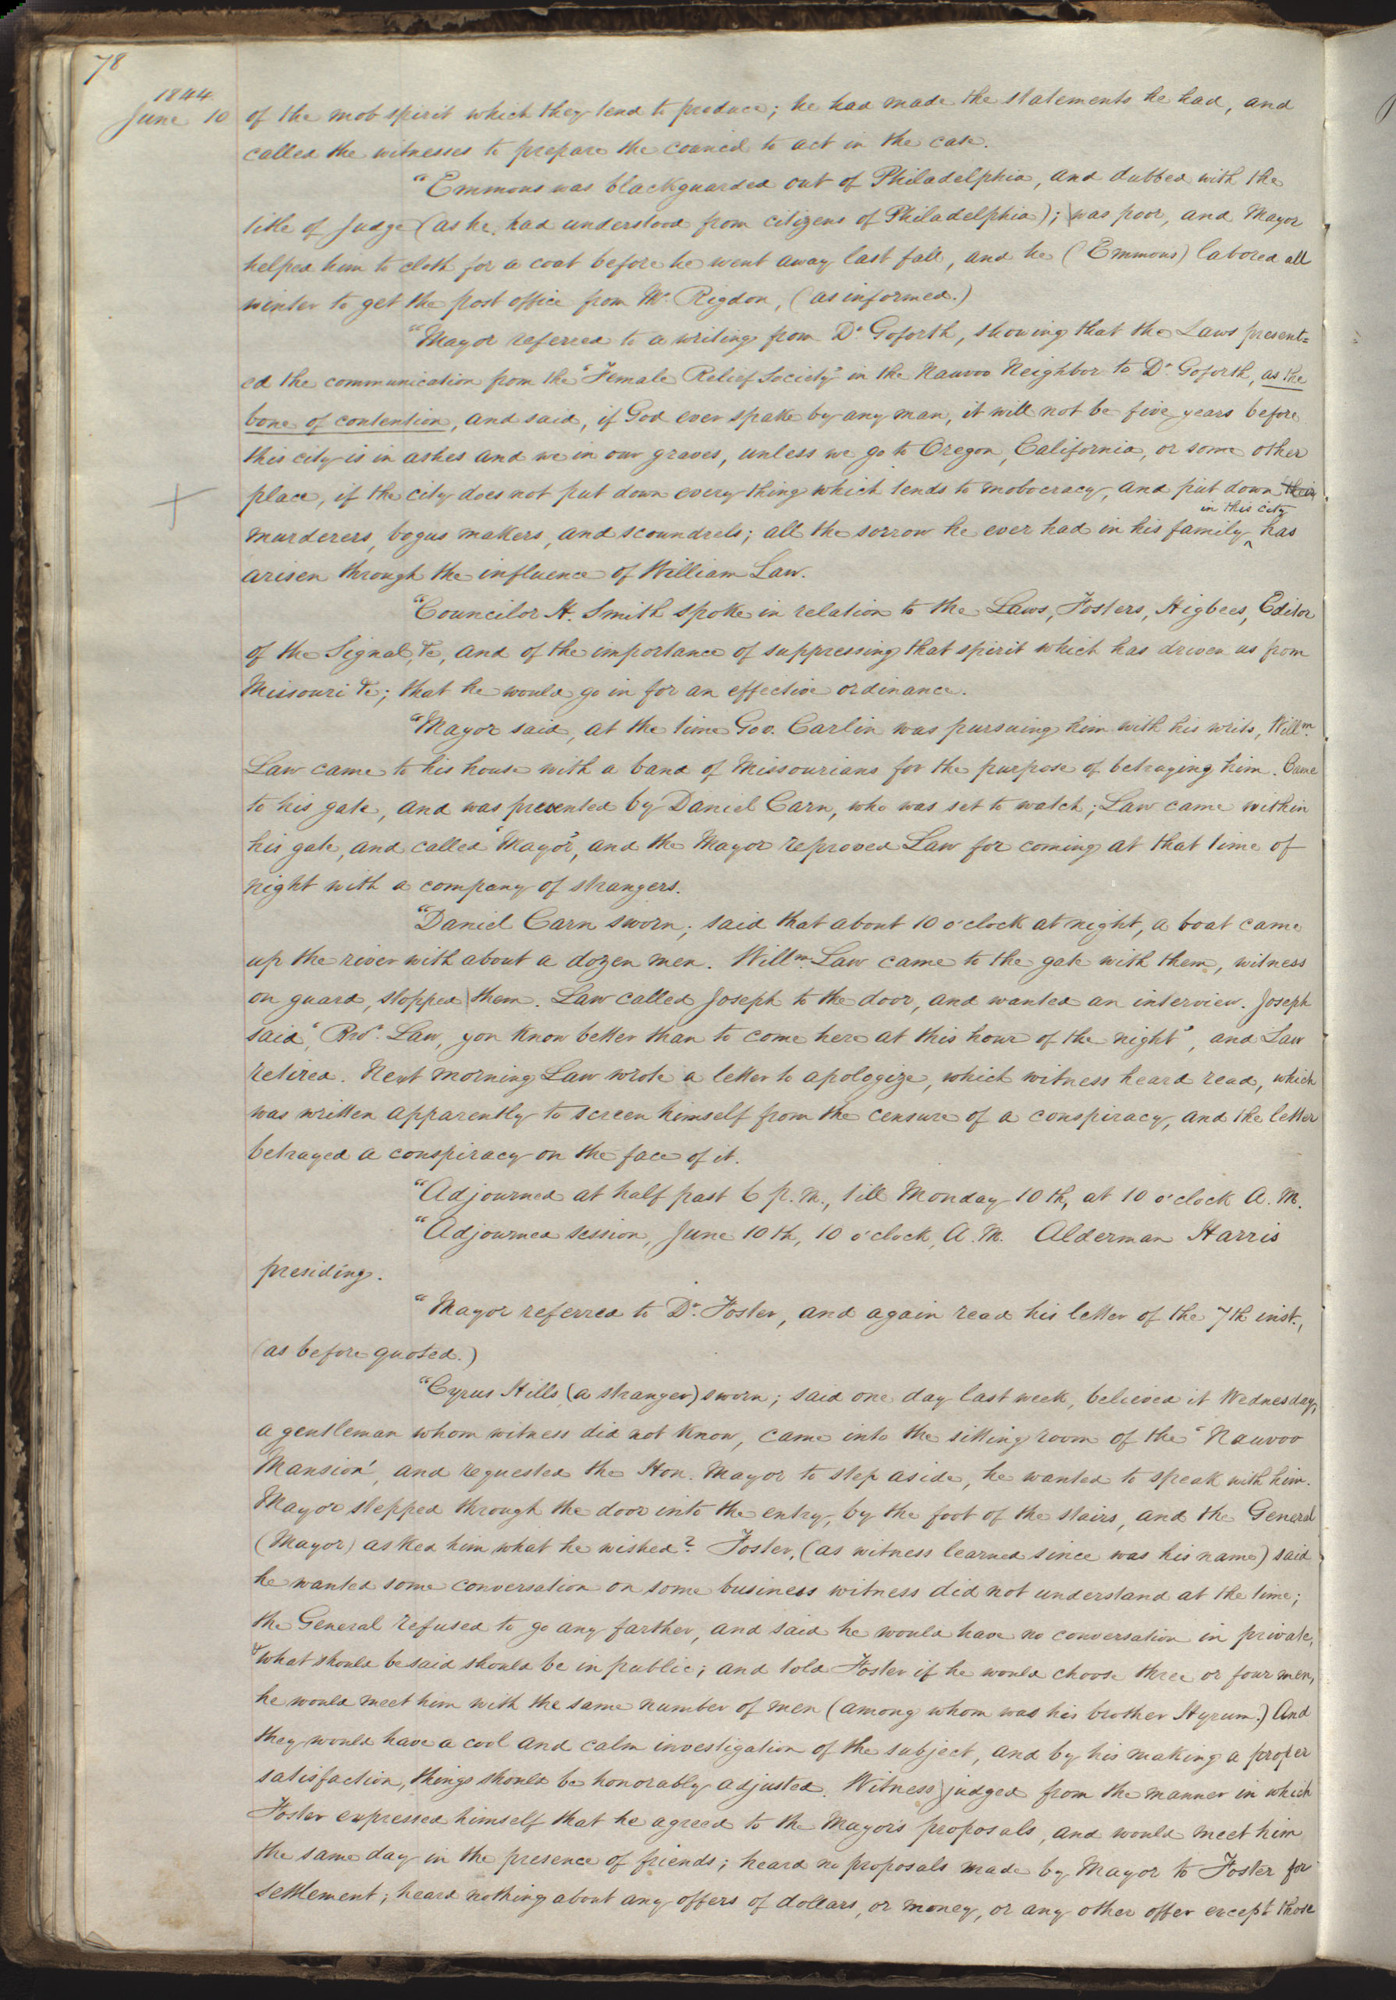 78
1844
June 10
of the mob spirit which they tend to produce; he had made the statements he had, and
called the witnesses to prepare the council to act in the case.
"Emmons was blackguarded out of Philadelphia, and dubbed with the
title of Judge (as he had understood from citizens of Philadelphia); was poor, and Mayor
helped him to cloth for a coat before he went away last fall, and he (Emmons) labored all
winter to get the post office from Mr. Rigdon, (as informed.)
"Mayor referred to a writing from Dr. Goforth, showing that the Laws present=
ed the communication from the "Female Relief Society" in the Nauvoo Neighbor to Dr. Goforth, as the
bone of contention, and said, if God ever spake by any man, it will not be five years before
this city is in ashes and we in our graves, unless we go to Oregon, California, or some other
place, if the city does not put down every thing which tends to mobocracy, and put down their
in this city
murderers, bogus makers, and scoundrels; all the sorrow he ever had in his family ^ has
arisen through the influence of William Law.
"Councilor H. Smith spoke in relation to the Laws, Fosters, Higbees, Editor
of the Signal, &c, and of the importance of suppressing that spirit which has driven us from
Missouri &c; that he would go in for an effective ordinance.
"Mayor said, at the time Gov. Carlin was pursuing him with his writs, Willm.
Law came to his house with a band of Missourians for the purpose of betraying him. Came
to his gate, and was prevented by Daniel Carn, who was set to watch; Law came within
his gate, and called 'Mayor', and the Mayor reproved Law for coming at that time of
night with a company of strangers.
"Daniel Carn sworn; said that about 10 o'clock at night, a boat came
up the river with about a dozen men. Willm. Law came to the gate with them, witness
on guard, stopped them. Law called Joseph to the door, and wanted an interview. Joseph
said, 'Bro. Law, you know better than to come here at this hour of the night', and Law
retired. Next morning Law wrote a letter to apologize, which witness heard read, which
was written apparently to screen himself from the censure of a conspiracy, and the letter
betrayed a conspiracy on the face of it.
"Adjourned at half past 6 p.m., till Monday 10th, at 10 o'clock A.M.
"Adjourned session, June 10th, 10 o'clock, A.M. Alderman Harris
presiding.
"Mayor referred to Dr. Foster, and again read his letter of the 7th inst.,
(as before quoted.)
"Cyrus Hills, (a stranger) sworn; said one day last week, believed it Wednesday,
a gentleman whom witness did not know, came into the sitting room of the 'Nauvoo
Mansion', and requested the Hon. Mayor to step aside, he wanted to speak with him.
Mayor stepped through the door into the entry, by the foot of the stairs, and the General
(Mayor) asked him what he wished? Foster, (as witness learned since was his name) said
he wanted some conversation on some business witness did not understand at the time;
the General refused to go any farther, and said he would have no conversation in private,
& what should be said should be in public; and told Foster if he would choose three or four men,
he would meet him with the same number of men (among whom was his brother Hyrum.) And
they would have a cool and calm investigation of the subject, and by his making a proper
satisfaction, things should be honorably adjusted. Witness judged from the manner in which
Foster expressed himself that he agreed to the Mayor's proposals, and would meet him
the same day in the presence of friends; heard no proposals made by Mayor to Foster for
settlement; heard nothing about any offers of dollars, or money, or any other offer except those